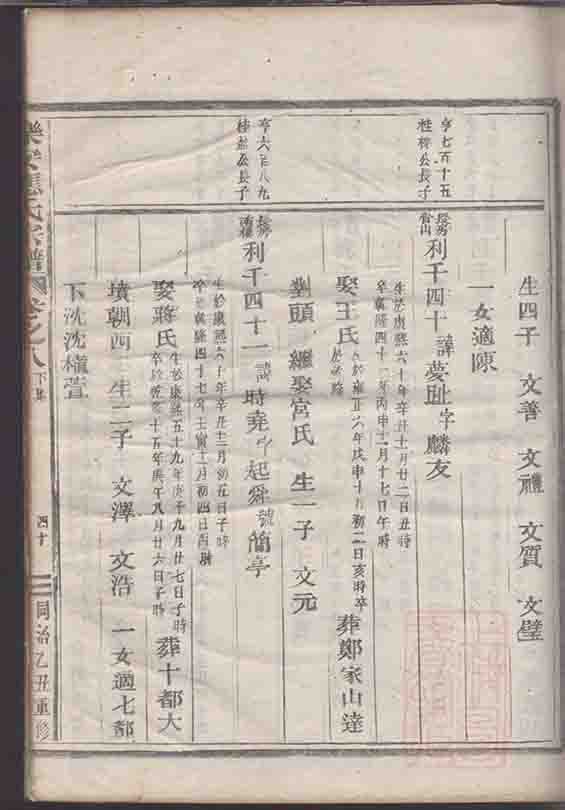 生四子 文善 文禮 文質 文璧
一女適陳
亨七百十五
桂梓公長子
利千四十 諱夢趾字麟友
生於康熙六十年辛丑十月廿二日丑時
卒乾隆四十一年丙申十二月十七日午時
娶王氏 於雍正六年戊申十月初二日亥時卒 葬鄭家山達
剗頭 繼娶宮氏 生一子 文元
亨六百八九
桂 公長子
利千四十一 諱時堯 起舜號簡亭
生於康熙六十年辛丑十二月初五日子時
卒於乾隆四十七年壬寅十二月初四日酉時
娶蔣氏 生於康熙五十九年庚子九月廿七日子時
卒於乾隆十五年庚午八月廿六日子時 葬十都大
墳朝西 生二子 文澤 文浩 一女適七都
下沈沈權萱
樂安蔣氏宗譜 卷之八 下集 四十 同治乙丑重修